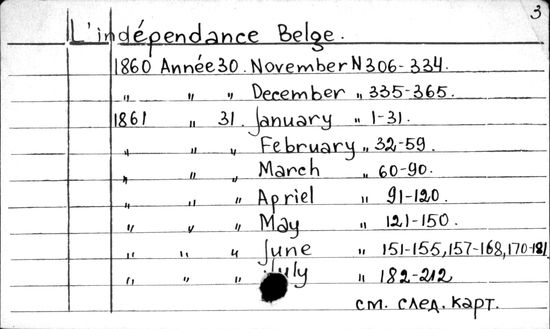 3
L'indépendance Belge.
1860 Année 30. November N 306-334.
" " " December " 335-365.
1861 " 31. January " 1-31.
" " " February " 32-59.
" " " March " 60-90.
" " " Apriel " 91-120.
" " " May " 121-150.
" " " June " 151-155, 157-168, 170-181
" " " July " 182-212
см. след. карт.